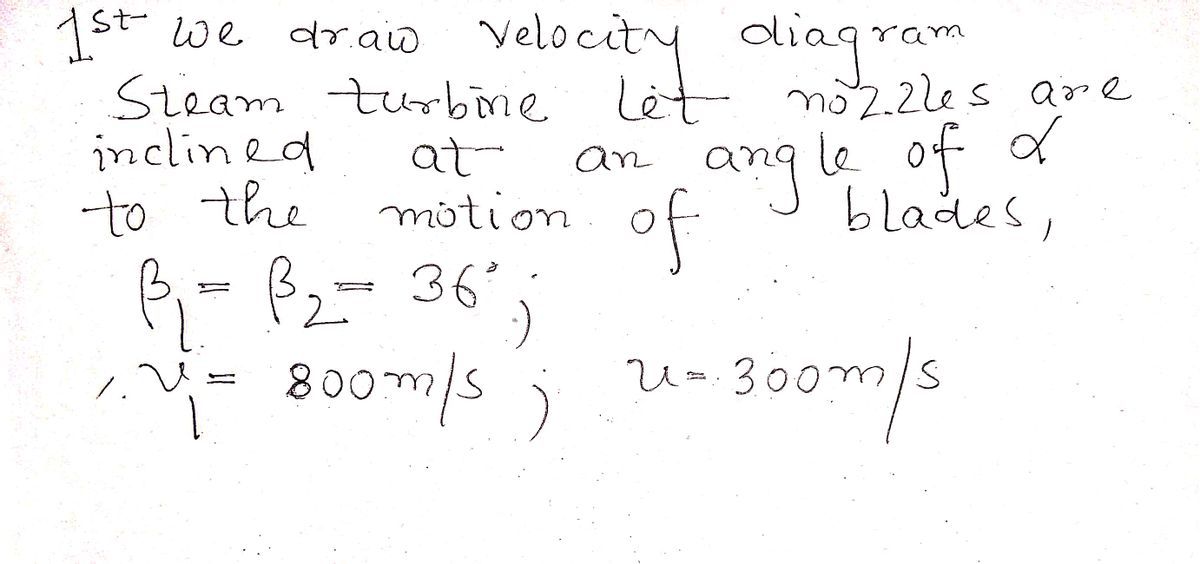 1st we draw velocity diagram
Steam turbine let nozzles are
inclined at an angle of α
to the motion of blades,
β₁ = β₂ = 36°;
V₁ = 800m/s ; u = 300m/s